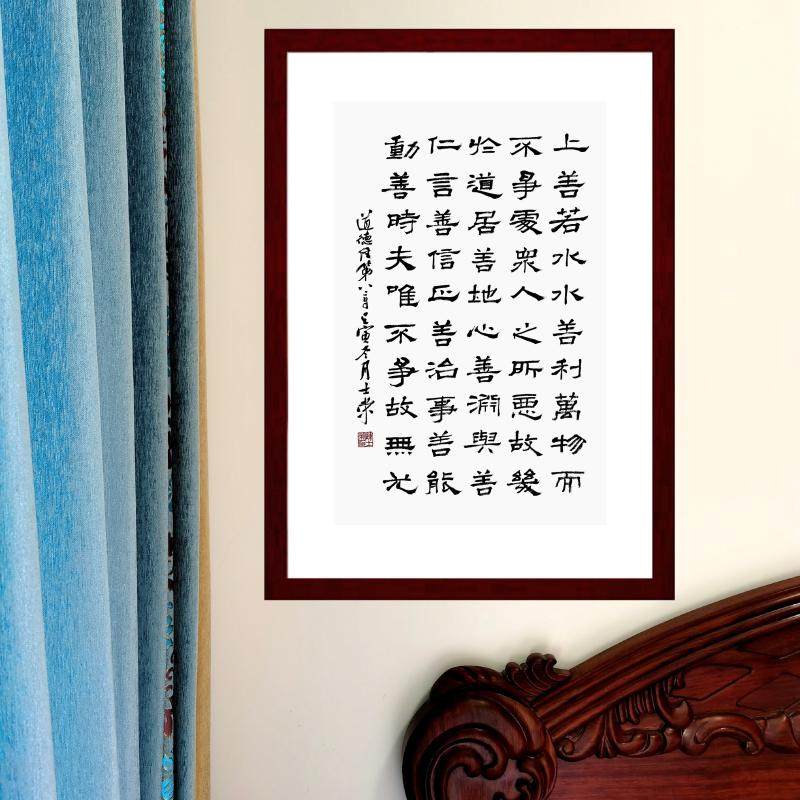 上善若水水善利萬物而
不爭處衆人之所惡故幾
於道居善地心善淵與善
仁言善信正善治事善能
動善時夫唯不爭故無尤
道德經第八章壬寅冬月士